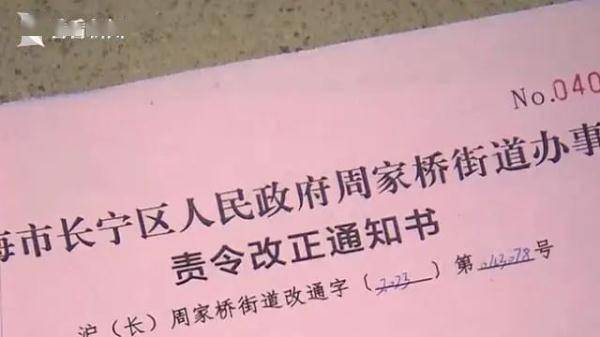 No.040
海市长宁区人民政府周家桥街道办事
责令改正通知书
沪（长）周家桥街道改通字（2023）第043078号